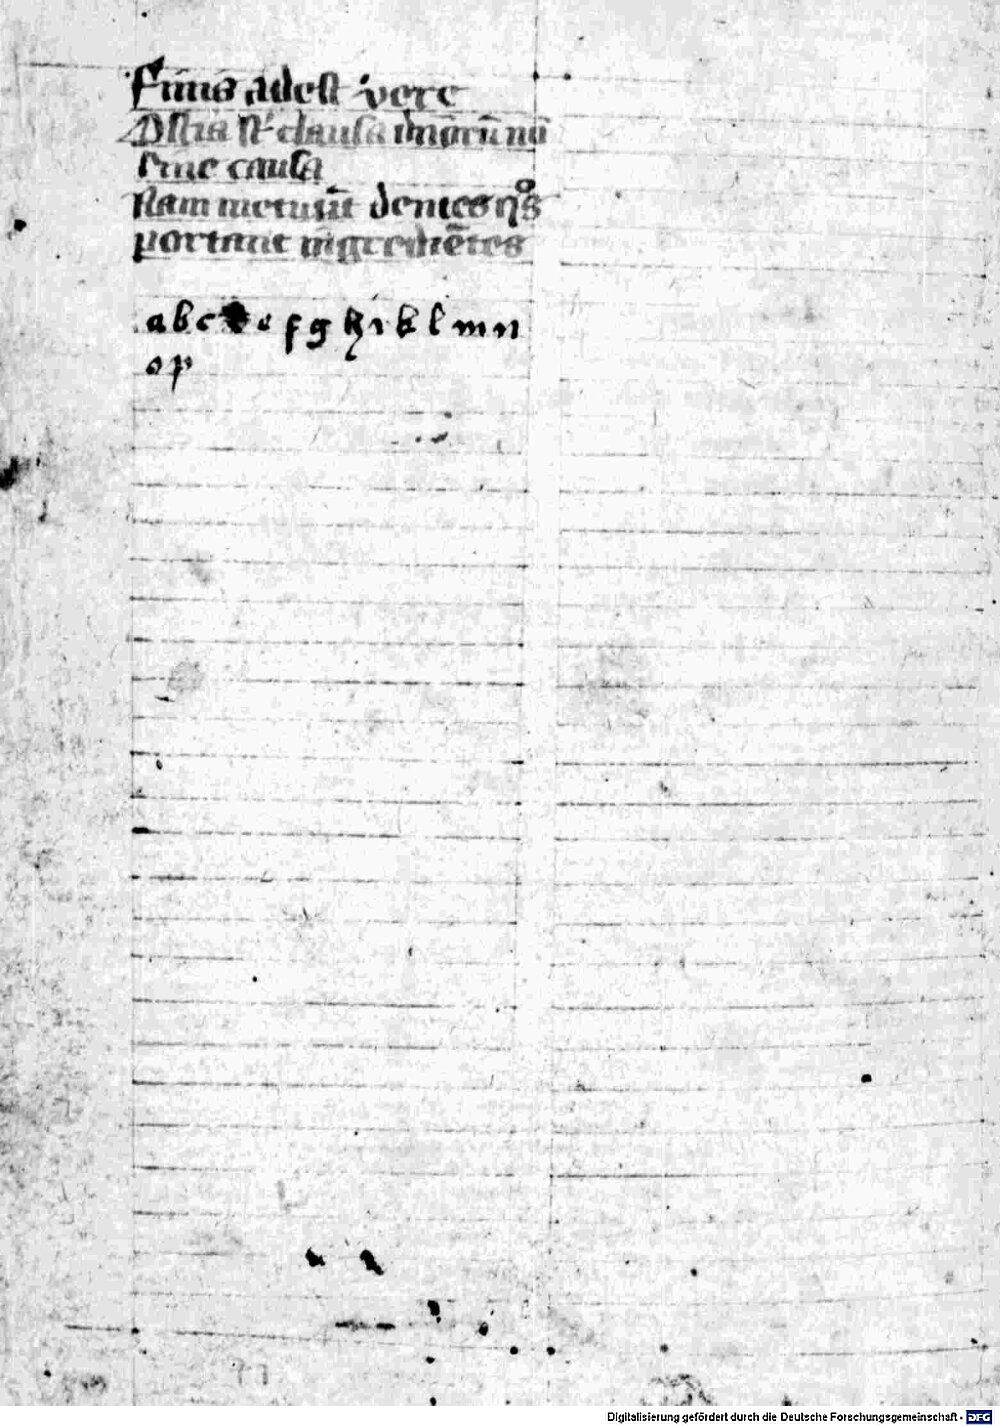 Finis adest vere
Ostia st clausa imoru nū
sine causa
Nam metuūt dentes qs
portant ingrediētes
a b c d e f g h i k l m n
o p
Digitalisierung gefördert durch die Deutsche Forschungsgemeinschaft - DFG